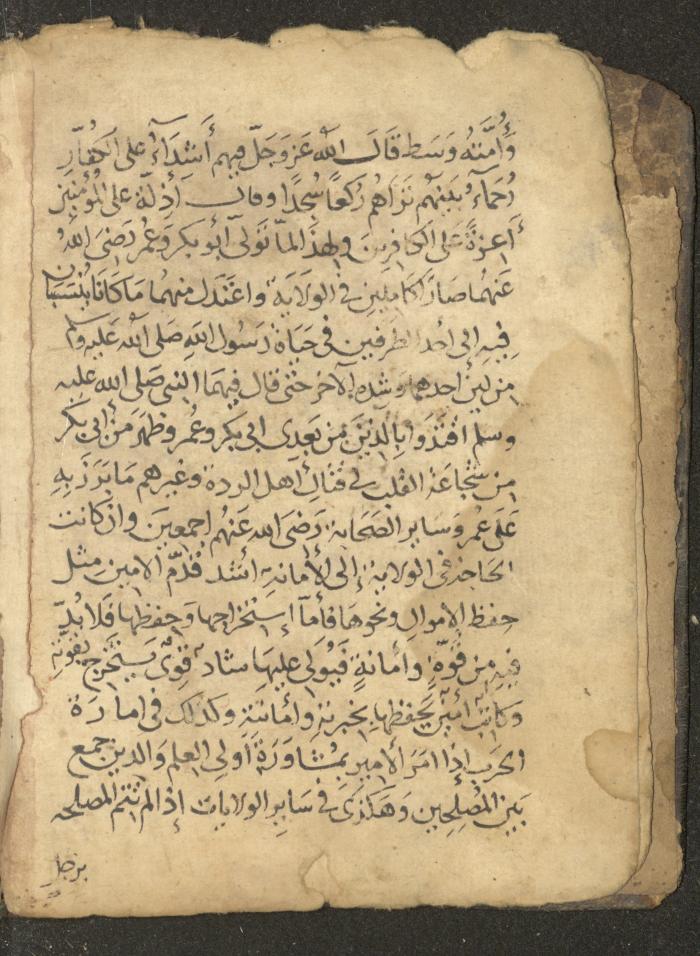 وَأُمَّتُهُ وَسَط قَالَ اللَّه عَزَّوَجَلّ فِيهِم أَشِدَّاءُ عَلَى الكُفَّارِ
رُحَمَاءُ بَيْنَهُم تَرَاهُم رُكَّعًا سُجَّدًا وقال أَذِلَّة عَلى المُؤمِنِين
أَعِزَّةً عَلى الكافِرينَ ولِهذا لمّا تَوَلّى أبُو بَكرٍ وَعُمر رَضِى اللهُ
عَنهُما صَارَا كَامِلَينِ فى الوَلايَةِ واعْتَدَل مِنهُما مَا كَانَا يُنسَبَان
فِيهِ إلى أحد الطرفين فى حَيَاة رَسُول اللهِ صَلى الله عَليه وسلم
مِن لين أحدهما وَشده الآخر حَتى قال فِيهمَا النبى صَلى الله عليه
وسلم اقتَدَوا بِالذَينَ مِن بَعدِى ابى بكر وعُمر وظهَرَ مِن ابى بَكر
مِن شجَاعَة القَلب فى قتَالِ أهل الردة وغيرهم مَا بَرَزَ بِهِ
عَلَى عُمر وَسَايرِ الصَحَابة رَضىَ الله عَنهُم اجمعِينَ وان كانت
الحاجة فى الولاية إلى الأمانةِ اشد قُدّمَ الامين مِثل
حِفظ الاموالِ ونحوهَا فأمّا إستِخراجها وَحِفظِها فَلا بُدَّ
فيهِ مِن قُوّةٍ وأمَانةٍ فَيُولى عليهَا شاد قوىّ يستَخرج بقوّتهِ
وَكاتب أمِين يَحفَظها بخبرتهِ وأمانتهِ وكذلك فى امارَة
الحَرب إذا امَرَ الأمِير بمشاوَرَة أولى العِلم وَالدين جمع
بَين المُصلِحين وَهَكذى فى سَايرِ الولايات إذا لم تتم المصلحه
برجل